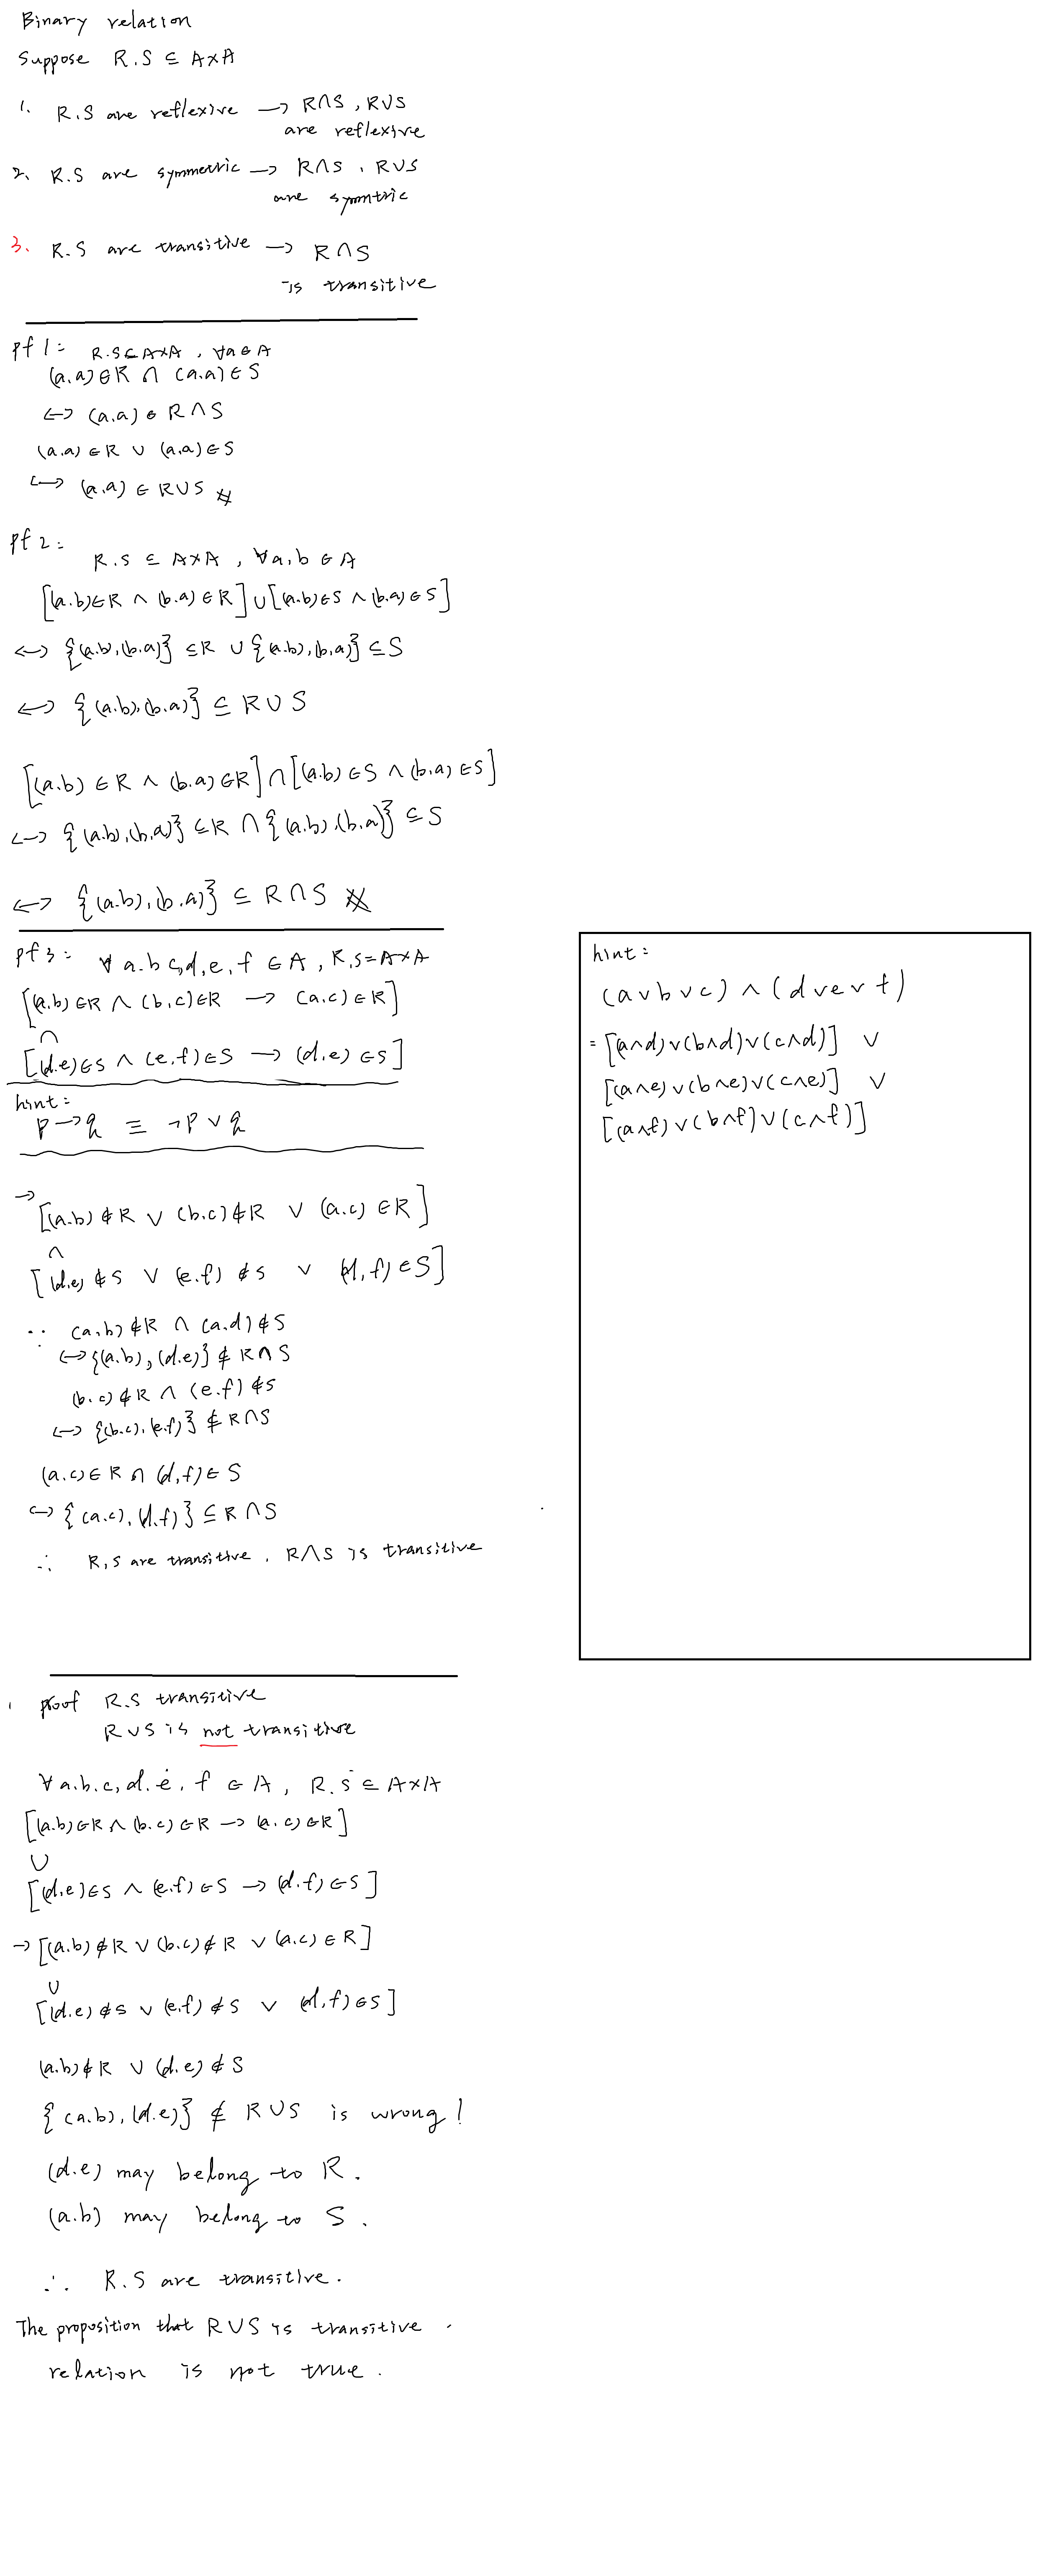 Binary relation
Suppose R.S ⊆ A×A
1. R.S are reflexive → R∩S, R∪S
are reflexive
2. R.S are symmetric → R∩S, R∪S
are symntric
3. R.S are transitive → R∩S
is transitive
pf 1: R.S⊆A×A, ∀a∈A
(a.a)∈R ∩ (a.a)∈S
↔ (a.a)∈R∩S
(a.a)∈R ∪ (a.a)∈S
↔ (a.a)∈R∪S #
pf 2: R.S ⊆ A×A, ∀a,b∈A
[(a.b)∈R ∧ (b.a)∈R]∪[(a.b)∈S ∧ (b.a)∈S]
↔ {(a.b),(b.a)} ⊆R ∪ {(a.b),(b.a)} ⊆S
↔ {(a.b),(b.a)} ⊆ R∪S
[(a.b)∈R ∧ (b.a)∈R]∩[(a.b)∈S ∧ (b.a)∈S]
↔ {(a.b),(b.a)} ⊆R ∩ {(a.b),(b.a)} ⊆S
↔ {(a.b),(b.a)} ⊆ R∩S #
pf 3: ∀ a.b c,d,e,f ∈A, R,S=A×A
[(a.b)∈R ∧ (b,c)∈R → (a,c)∈R]
∩
[(d.e)∈S ∧ (e,f)∈S → (d,e)∈S]
hint:
p→q ≡ ¬p∨q
→ [(a.b)∉R ∨ (b.c)∉R ∨ (a.c)∈R]
∧
[(d.e)∉S ∨ (e.f)∉S ∨ (d,f)∈S]
∵ (a,b)∉R ∩ (a,d)∉S
↔ {(a.b),(d.e)} ⊄ R∩S
(b.c)∉R ∧ (e.f)∉S
↔ {(b.c),(e.f)} ⊈ R∩S
(a.c)∈R ∩ (d,f)∈S
↔ {(a.c),(d.f)} ⊆R∩S
∴ R,S are transitive, R∩S is transitive
hint:
(a∨b∨c)∧(d∨e∨f)
= [(a∧d)∨(b∧d)∨(c∧d)] ∨
[(a∧e)∨(b∧e)∨(c∧e)] ∨
[(a∧f)∨(b∧f)∨(c∧f)]
proof R.S transitive
R∪S is not transitive
∀a.b.c,d.e,f ∈A, R.S ⊆A×A
[(a.b)∈R ∧ (b.c)∈R → (a.c)∈R]
∪
[(d.e)∈S ∧ (e.f)∈S → (d.f)∈S]
→ [(a.b)∉R ∨ (b.c)∉R ∨ (a.c)∈R]
∪
[(d.e)∉S ∨ (e,f)∉S ∨ (d,f)∈S]
(a.b)∉R ∪ (d.e)∉S
{(a.b),(d.e)} ⊈ R∪S is wrong!
(d.e) may belong to R.
(a.b) may belong to S.
∴ R.S are transitive.
The proposition that R∪S is transitive.
relation is not true.